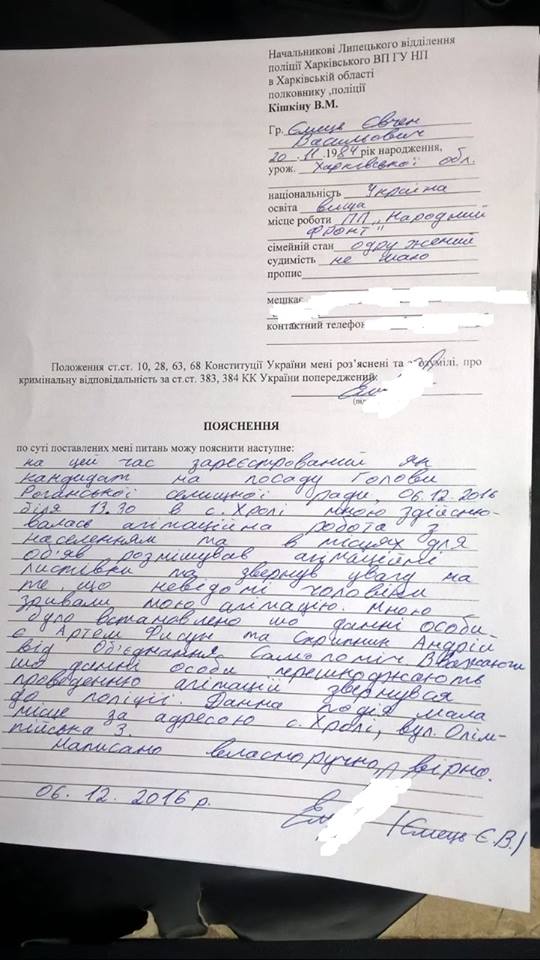 Начальникові Липецького відділення
поліції Харківського ВП ГУ НП
в Харківській області
полковнику ,поліції
Кішкіну В.М.
Гр. Ємець Євген
Васильович
20 .11 .1984 рік народження,
урож. Харківської обл.
національність Україна
освіта вища
місце роботи ПП „Народний
фронт"
сімейній стан одружений
судимість не маю
пропис
мешкає
контактний телефон
Положення ст.ст. 10, 28, 63, 68 Конституції України мені роз'яснені та зрозумілі, про
кримінальну відповідальність за ст.ст. 383, 384 КК України попереджений:
ПОЯСНЕННЯ
по суті поставлених мені питань можу пояснити наступне:
на цей час зареєстрований як
кандидат на посаду Голови
Роганської селищної ради, 06.12.2016
біля 13.30 в с. Хролі мною здійсню-
валась агітаційна робота з
населенням та в місцях для
об'яв розміщував агітаційні
листівки та звернув увагу на
те, що невідомі чоловіки
зривали мою агітацію. Мною
було встановлено що данні особи
є Артем Фисун та Скрипник Андрій
від Об'єднання Самопоміч. Вважаючи
що данні особи перешкоджають
проведенню агітацій звернувся
до поліції. Данна подія мала
місце за адресою с. Хролі, вул. Олім-
пійська 3.
Написано власноручно, вірно.
06. 12. 2016 р.
/Ємець Є.В./